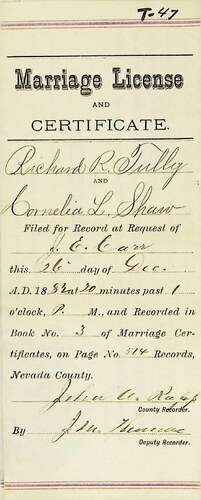 T-47
Marriage License
AND
CERTIFICATE.
Richard R. Tully
AND
Cornelia L. Shaw
Filed for Record at Request of
J. E. Carr
this 26 day of Dec.
A.D. 18 at 20 minutes past 1
o'clock, P. M., and Recorded in
Book No. 3 of Marriage Cer-
tificates, on Page No. 514 Records,
Nevada County.
John
County Recorder.
By
Deputy Recorder.